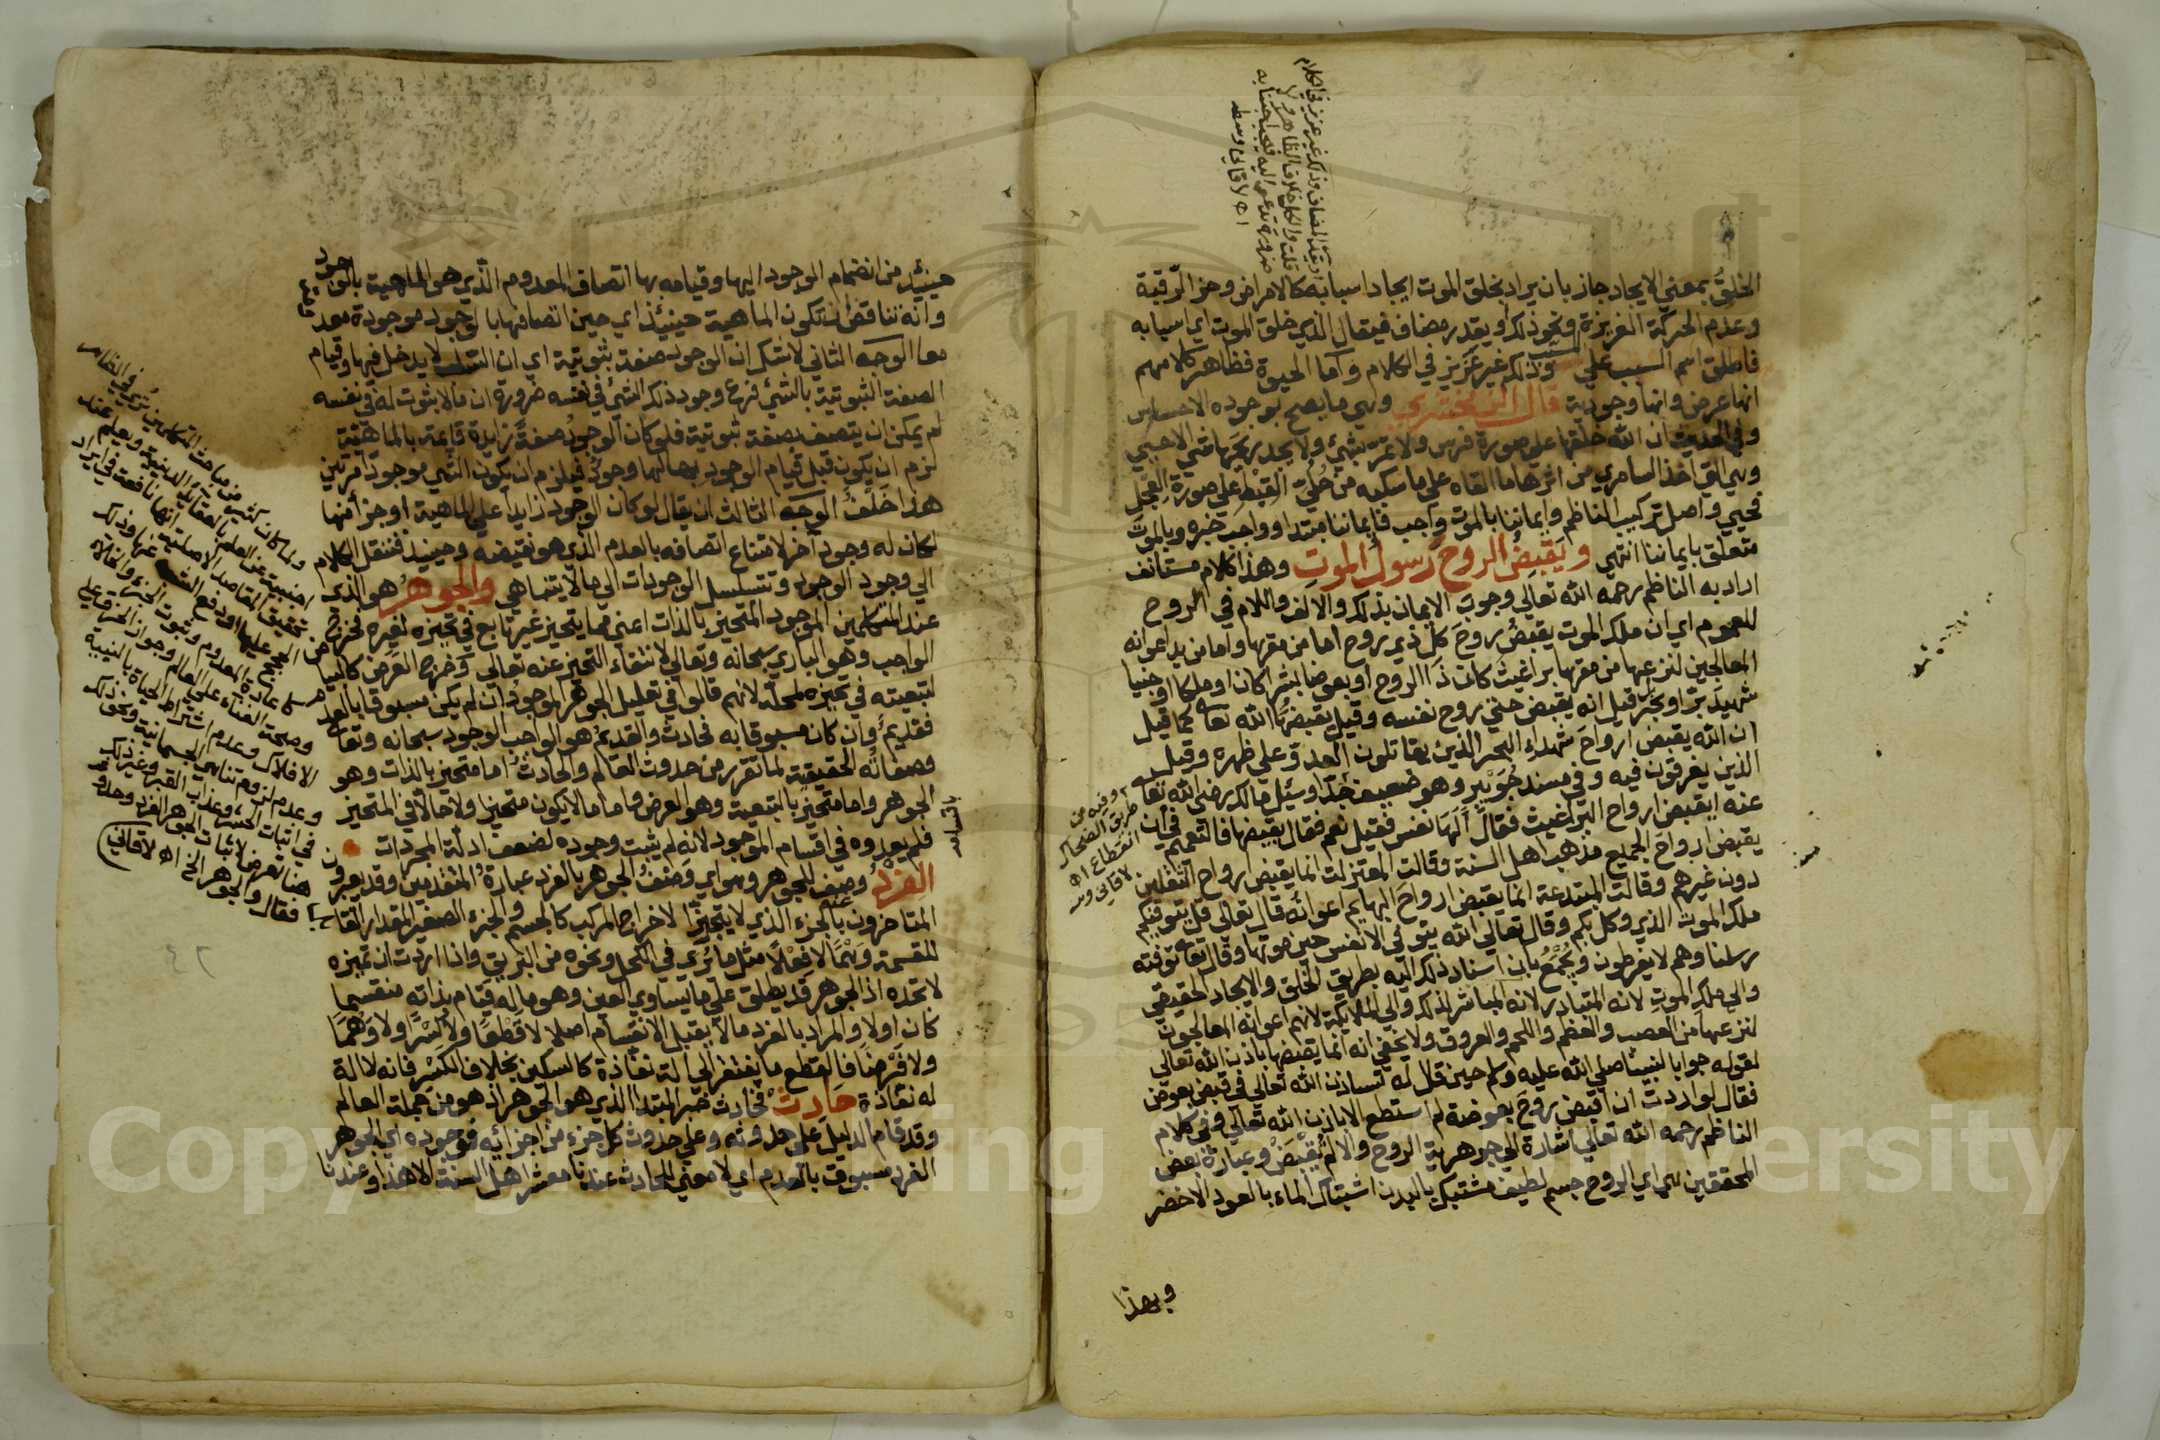 الخلق بمعني الايجاد جاز بان يراد بخلق الموت ايجاد اسبابه كالامراض وحز الرقبة
وعدم الحركة الغريزة ونحو ذلك او يقدر مضاف فيقال الذي خلق الموت اي اسبابه
فاطلق اسم السبب علي المسبب وذلك غير عزيز في الكلام واما الحيوة فظاهر كلامهم
انها عرض وانها وجودية قال الزمخشري وهي ما يصح بوجوده الاحساس
وفي الحديث ان الله خلقها علي صورة فرس ولا تمر بشئ ولا يجد ريحها شئ الا حيي
وهي التي اخذ السامري من اثرها ما القاه علي ما سكبه من حلي القبط علي صورة العجل
فحيي واصل تركيب الناظم وايماننا بالموت واجب فايماننا مبتدا وواجب خبره وبالموت
متعلق بايماننا انتهي ويقبض الروح رسول الموت وهذا كلام مستانف
اراد به الناظم رحمه الله تعالي وجوب الايمان بذلك والالف واللام في الروح
للعموم اي ان ملك الموت يقبض روح كل ذي روح اما من مقرها واما من يد اعوانه
المعالجين لنزعها من مقرها براغيث كان ذا الروح او بعوضا بشرا كان او ملكا او جنيا
شهيد بر او بحر قيل انه يقبض حتي روح نفسه وقيل يقبضها الله تعالي كما قيل
ان الله يقبض ارواح شهداء البحر الذين يقاتلون العدو علي ظهره وقيل
الذين يغرقون فيه وفي مسند جويبر وهو ضعيف جدا وسئل مالك رضي الله تعالي
عنه ايقبض ارواح البراغيث فقال ألها نفس فقيل نعم فقال يقبضها فالتعميم في ان
يقبض ارواح الجميع مذهب اهل السنة وقالت المعتزلة انما يقبض ارواح الثقلين
دون غيرهم وقالت المبتدعة انما يقبض ارواح البهايم اعوانه قال تعالي قل يتوفيكم
ملك الموت الذي وكل بكم وقال تعالي الله يتوفي الانفس حين موتها وقال تعالي توفته
رسلنا وهم لا يفرطون ويجمع بان اسناد ذلك اليه بطريق الخلق والايجاد الحقيقي
والي ملك الموت لانه المتبادر لانه المباشر لذلك والي الملايكة لانهم اعوانه المعالجون
لنزعها من العصب والعظم واللحم والعروق ولا يخفي انه انما يقبضها باذن الله تعالي
لقوله جوابا لنبينا صلي الله عليه وسلم حين قال له تستاذن الله تعالي في قبض بعوض
فقال لو اردت ان اقبض روح بعوضة لم استطع الا باذن الله تعالي وفي كلام
الناظم رحمه الله تعالي اشارة الي جوهرية الروح والا لم تقبض وعبارة بعض
المحققين هي اي الروح جسم لطيف مشتبك بالبدن اشتباك الماء بالعود الاخضر
وبهذا
وفيه من
طريق الضحاك
انقطاع اه
لاقاني وسط
حينيئذ من انضمام الوجود اليها وقيامه بها اتصاف المعدوم الذي هو الماهية بالوجود
وانه تناقض ان تكون الماهية حينيئذ اي حين اتصافها بالوجود موجودة معدومة
معا الوجه الثاني لا شك ان الوجود صفة ثبوتية اي ان السلب لا يدخل فيها وقيام
الصفة الثبوتية بالشئ فرع وجود ذلك الشئ في نفسه ضرورة ان ما لا ثبوت له في نفسه
لم يمكن ان يتصف بصفة ثبوتية فلو كان الوجود صفة زايدة قايمة بالماهية
لزم ان يكون قبل قيام الوجود بها لها وجود فيلزم ان يكون الشئ موجودا مرتين
هذا خلف الوجه الثالث ان يقال لو كان الوجود زايدا علي الماهية او جزأ منها
لكان له وجود آخر لامتناع اتصافه بالعدم الذي هو نقيضه وحينيذ فننقل الكلام
الي وجود الوجود وتتسلسل الوجودات الي ما لا يتناهي والجوهر هو الذي
عند المتكلمين الموجود المتحيز بالذات اعني ما يتحيز غير تابع في تحيزه لغيره فخرج
الواجب وهو الباري سبحانه وتعالي لانتفاء التحيز عنه تعالي وخرج العرض كالبياض
لتبعيته في تحيزه لمحله لانهم قالوا في تعليل الجوهر الموجود ان لم يكن مسبوقا بالعدم
فقديم وان كان مسبوقا به فحادث والقديم هو الواجب الوجود سبحانه وتعالي
وصفاته الحقيقية لما تقرر من حدوث العالم والحادث اما متحيز بالذات وهو
الجوهر واما متحيز بالتبعية وهو العرض واما ما لا يكون متحيزا ولا حالا في المتحيز
فلم يعدوه في اقسام الموجود لانه لم يثبت وجوده لضعف ادلة المجردات
الفرد وصف للجوهر وهو اي وصف الجوهر بالفرد عبارة المتقدمين وقد يعبرون
المتاخرون عنه بالجزء الذي لا يتجزأ لاخراج المركب كالجسم والجزء الصغير المقدار القابل
للقسمة وهما لا فعلا مثل ما تري في الكحل ونحوه من التربي واذا اردت ان تميزه
لا تحده اذ الجوهر قد يطلق علي ما يساوي العين وهو ما له قيام بذاته منقسما
كان اولا والمراد بالفرد ما لا يقبل الانقسام اصلا لا قطعا ولا كسرا ولا وهما
ولا فرضا فالقطع ما يفتقر الي آلة نفاذة كالسكين بخلاف الكسر فانه لا آلة
له نفاذة حادث فحادث خبر المبتدا الذي هو الجوهر اذ هو من جملة العالم
وقد قام الدليل علي حدوثه وعلي حدوث كل جزء من اجزائه فوجوده اي الجوهر
الفرد مسبوق بالعدم اي لا معني للحادث عندنا معشر اهل السنة الا هذا وعندنا
ولما كان كثير من مباحث المتكلمين تري في الظاهر
اجنبية عن العلم بالعقايد الدينية ويعلم عند
تحقيق المقاصد الاصلية انها نافعة في ايراد
الحجج عليها او دفع الشبه عنها وذلك
كاعادة المعدوم وثبوت الجزء والخلاء
وصحة الفناء علي العالم وجواز الخرق علي
الافلاك وعدم اشتراط الحياة بالبنية
وعدم لزوم تناهي الجسمانية ونحو ذلك
في اثبات الحشر وعذاب القبر وغير ذلك
هنا تعرض لاثبات الجوهر الفرد وحدوثه
فقال والجوهر الخ اه لاقاني
٢٤
Copy King University